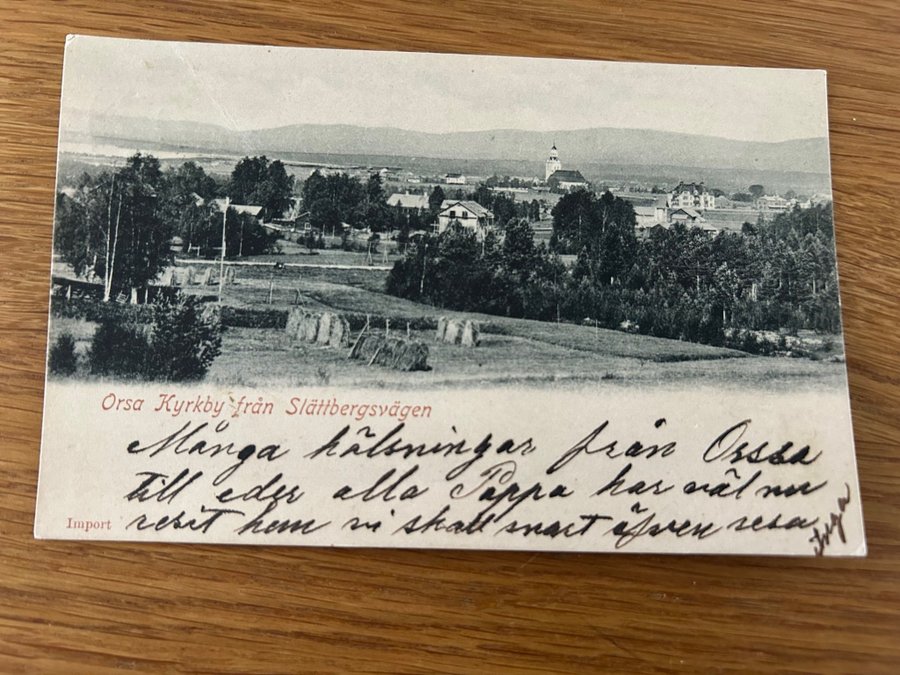 Orsa Kyrkby från Slättbergsvägen
Många hälsningar från Orssa
till eder alla Pappa har väl nu
Import
resit hem vi skall snart äfven resa
Inga